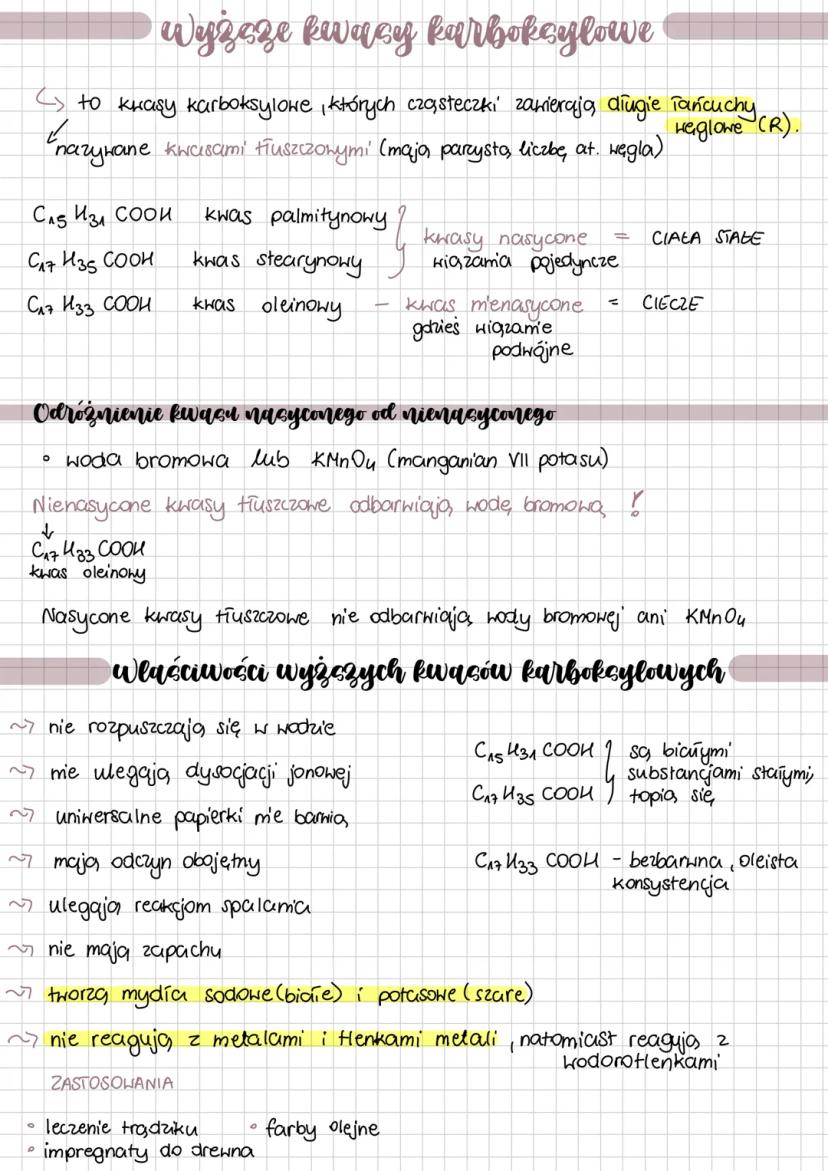 Wyższe kwasy karboksylowe
↳ to kwasy karboksylowe, których cząsteczki zawierają długie łańcuchy
węglowe (R).
nazywane kwasami tłuszczowymi (mają parzystą liczbę at. węgla)
C₁₅H₃₁COOH kwas palmitynowy
kwasy nasycone = CIAŁA STAŁE
C₁₇H₃₅COOH kwas stearynowy
wiązania pojedyncze
C₁₇H₃₃COOH kwas oleinowy - kwas nienasycone = CIECZE
gdzieś wiązanie
podwójne
Odróżnienie kwasu nasyconego od nienasyconego
• woda bromowa lub KMnO₄ (manganian VII potasu)
Nienasycone kwasy tłuszczowe odbarwiają wodę bromową !
↓
C₁₇H₃₃COOH
kwas oleinowy
Nasycone kwasy tłuszczowe nie odbarwiają wody bromowej ani KMnO₄
Właściwości wyższych kwasów karboksylowych
~> nie rozpuszczają się w wodzie
~> nie ulegają dysocjacji jonowej
~> uniwersalne papierki nie barwią
~> mają odczyn obojętny
~> ulegają reakcjom spalania
~> nie mają zapachu
~> tworzą mydła sodowe (białe) i potasowe (szare)
~> nie reagują z metalami i tlenkami metali, natomiast reagują z
wodorotlenkami
C₁₅H₃₁COOH } są białymi
substancjami stałymi,
C₁₇H₃₅COOH } topią się
C₁₇H₃₃COOH - bezbarwna, oleista
konsystencja
ZASTOSOWANIA
• leczenie trądziku • farby olejne
• impregnaty do drewna